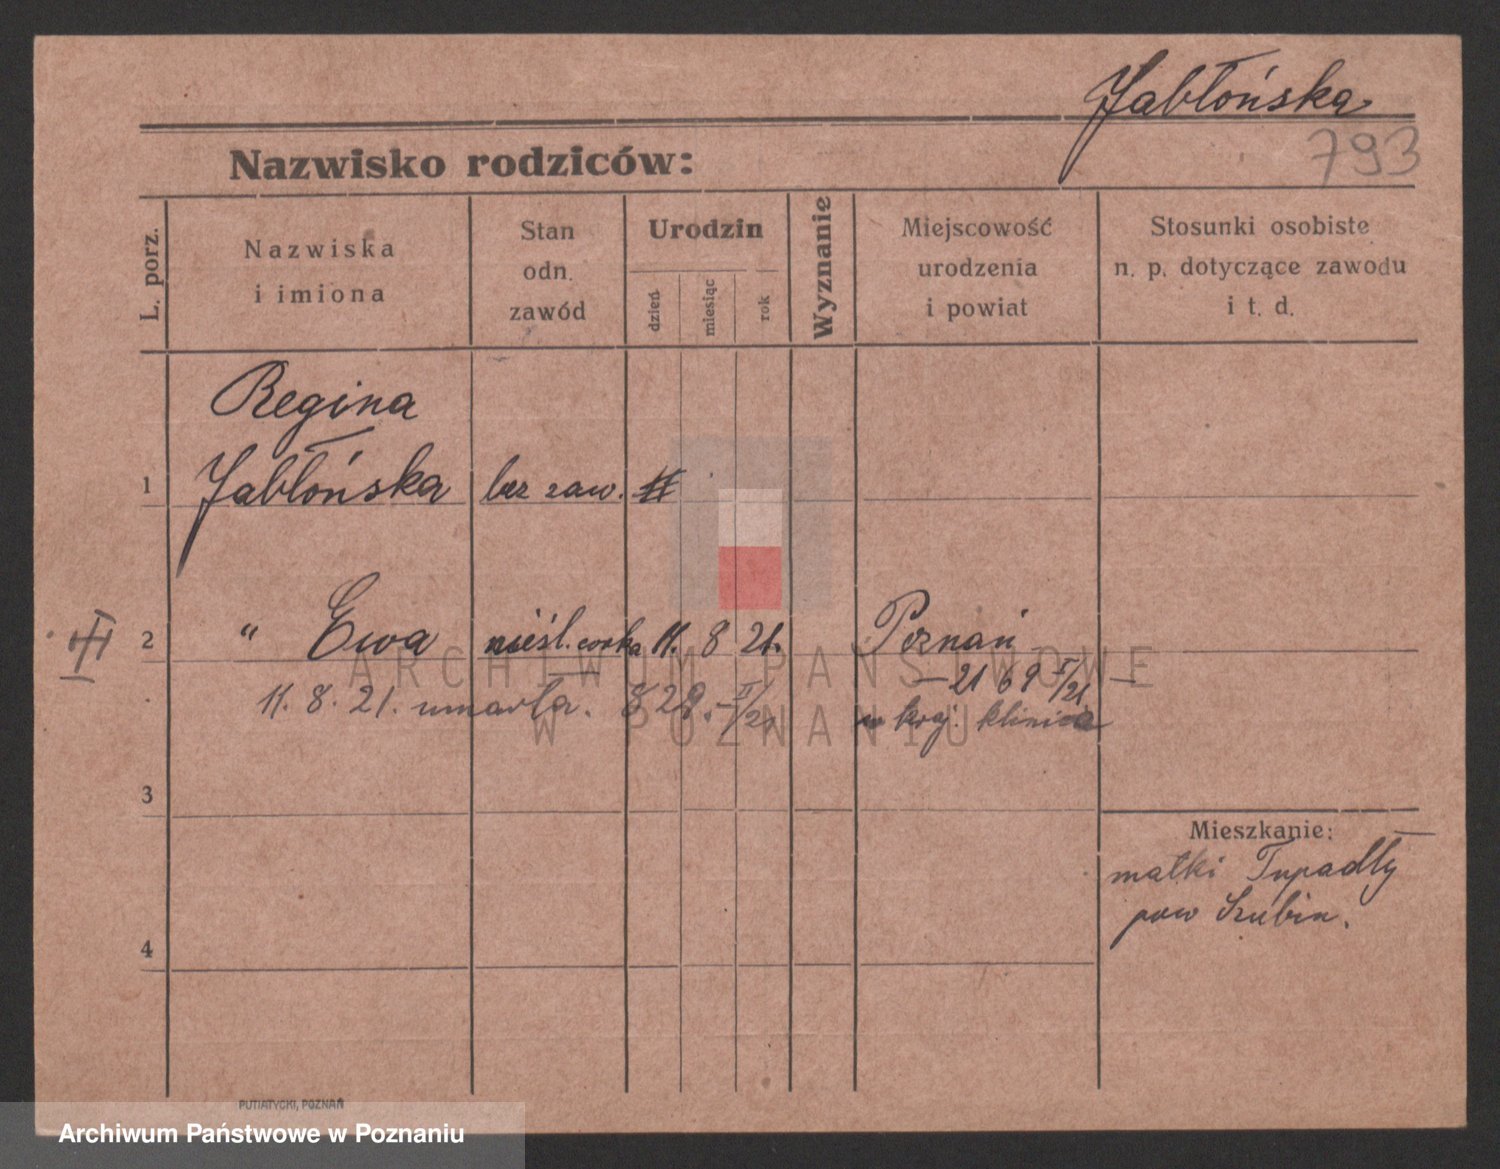 Jabłońska
793
Nazwisko rodziców:
L. porz.
Nazwiska
i imiona
Stan
odn.
zawód
Urodzin
dzień
miesiąc
rok
Wyznanie
Miejscowość
urodzenia
i powiat
Stosunki osobiste
n. p. dotyczące zawodu
i t. d.
Regina
1 Jabłońska bez zaw.
2 " Ewa nieśl. corka 11. 8 21. Poznań
— 2169 I/21 —
11. 8. 21. umarła. 829. II/21 w kraj. klinice
3
Mieszkanie:
matki Tupadły
pow Szubin.
4
PUTIATYCKI, POZNAŃ
ARCHIWUM PAŃSTWOWE
W POZNANIU
Archiwum Państwowe w Poznaniu